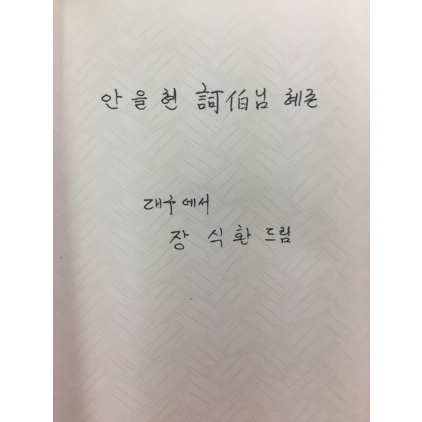 안 을 현 詞伯님 혜존
대구에서
장 식 환 드림